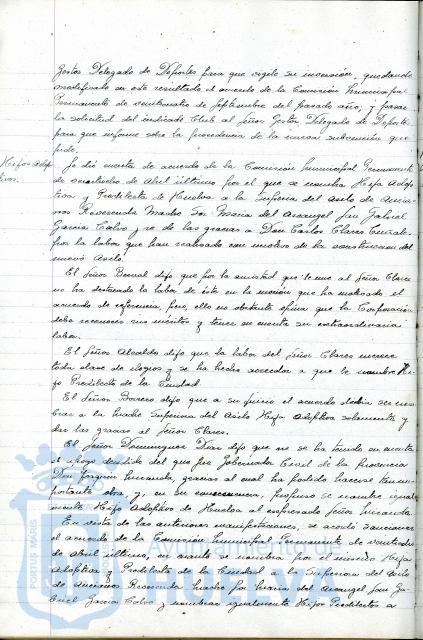 Gestor Delegado de Deportes para que vigile su inversión, quedando
modificado en este resultado el acuerdo de la Comisión Municipal
Permanente de veinticuatro de Septiembre del pasado año; y pasar
la solicitud del indicado Club al Señor Gestor Delegado de Deportes
para que informe sobre la procedencia de la nueva subvención que
pide.
Hijos Adop
tivos.
Se dió cuenta de acuerdo de la Comisión Municipal Permanente
de de Abril último por el que se nombra Hija Adop
tiva y Predilecta de Huelva a la Superiora del Asilo de Ancia
nos Reverenda Madre Sor María del Arcangel San Gabriel
García Calvo y se dé las gracias a Don Carlos Clares
por la labor que han realizado con motivo de la construcción del
nuevo Asilo.
El Señor Bernal dijo que por la amistad que le une al Señor Clares
no ha destacado la labor de éste en la moción que ha motivado el
acuerdo de referencia, pero, ello no obstante opina que la Corporación
debe reconocer sus méritos y tener en cuenta su extraordinaria
labor.
El Señor Alcalde dijo que la labor del Señor Clares merece
toda clase de elogios y se ha hecho acreedor a que le nombre Hi-
jo Predilecto de la Ciudad.
El Señor Borrero dijo que a su juicio el acuerdo debía ser nom
brar a la Madre Superiora del Asilo Hija Adoptiva solamente y
dar las gracias al Señor Clares.
El Señor Dominguez Diaz dijo que no se ha tenido en cuenta
el apoyo decidido del que fué Gobernador Civil de la provincia
Don Joaquin Miranda, gracias al cual ha podido hacerse tan im
portante obra, y, en su consecuencia, propuso se nombre igual
mente Hijo Adoptivo de Huelva al expresado Señor Miranda.
En vista de las anteriores manifestaciones, se acordó sancionar
el acuerdo de la Comisión Municipal Permanente de
de Abril último, en cuanto se nombra por el mismo Hija
Adoptiva y Predilecta de la Ciudad a la Superiora del Asilo
de Ancianos Reverenda Madre Sor María del Arcangel San Ga-
briel García Calvo y nombrar igualmente Hijos Predilectos a
PORTUS MARIS